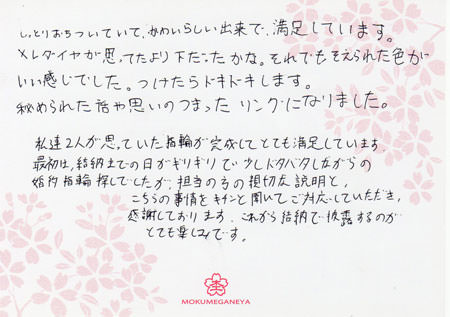 しっとりおちついていて、かわいらしい出来で、満足しています。
メレダイヤが思ってたより下だったかな。それでもそえられた色が
いい感じでした。つけたらドキドキします。
秘められた話や思いのつまった リングになりました。
私達2人が思っていた指輪が完成してとても満足しています。
最初は、結納までの日がギリギリで少しドタバタしながらの
婚約指輪探しでしたが、担当の方の親切な説明と、
こちらの事情をキチンと聞いてご対応していただき、
感謝しております。これから結納で披露するのが
とても楽しみです。
MOKUMEGANEYA